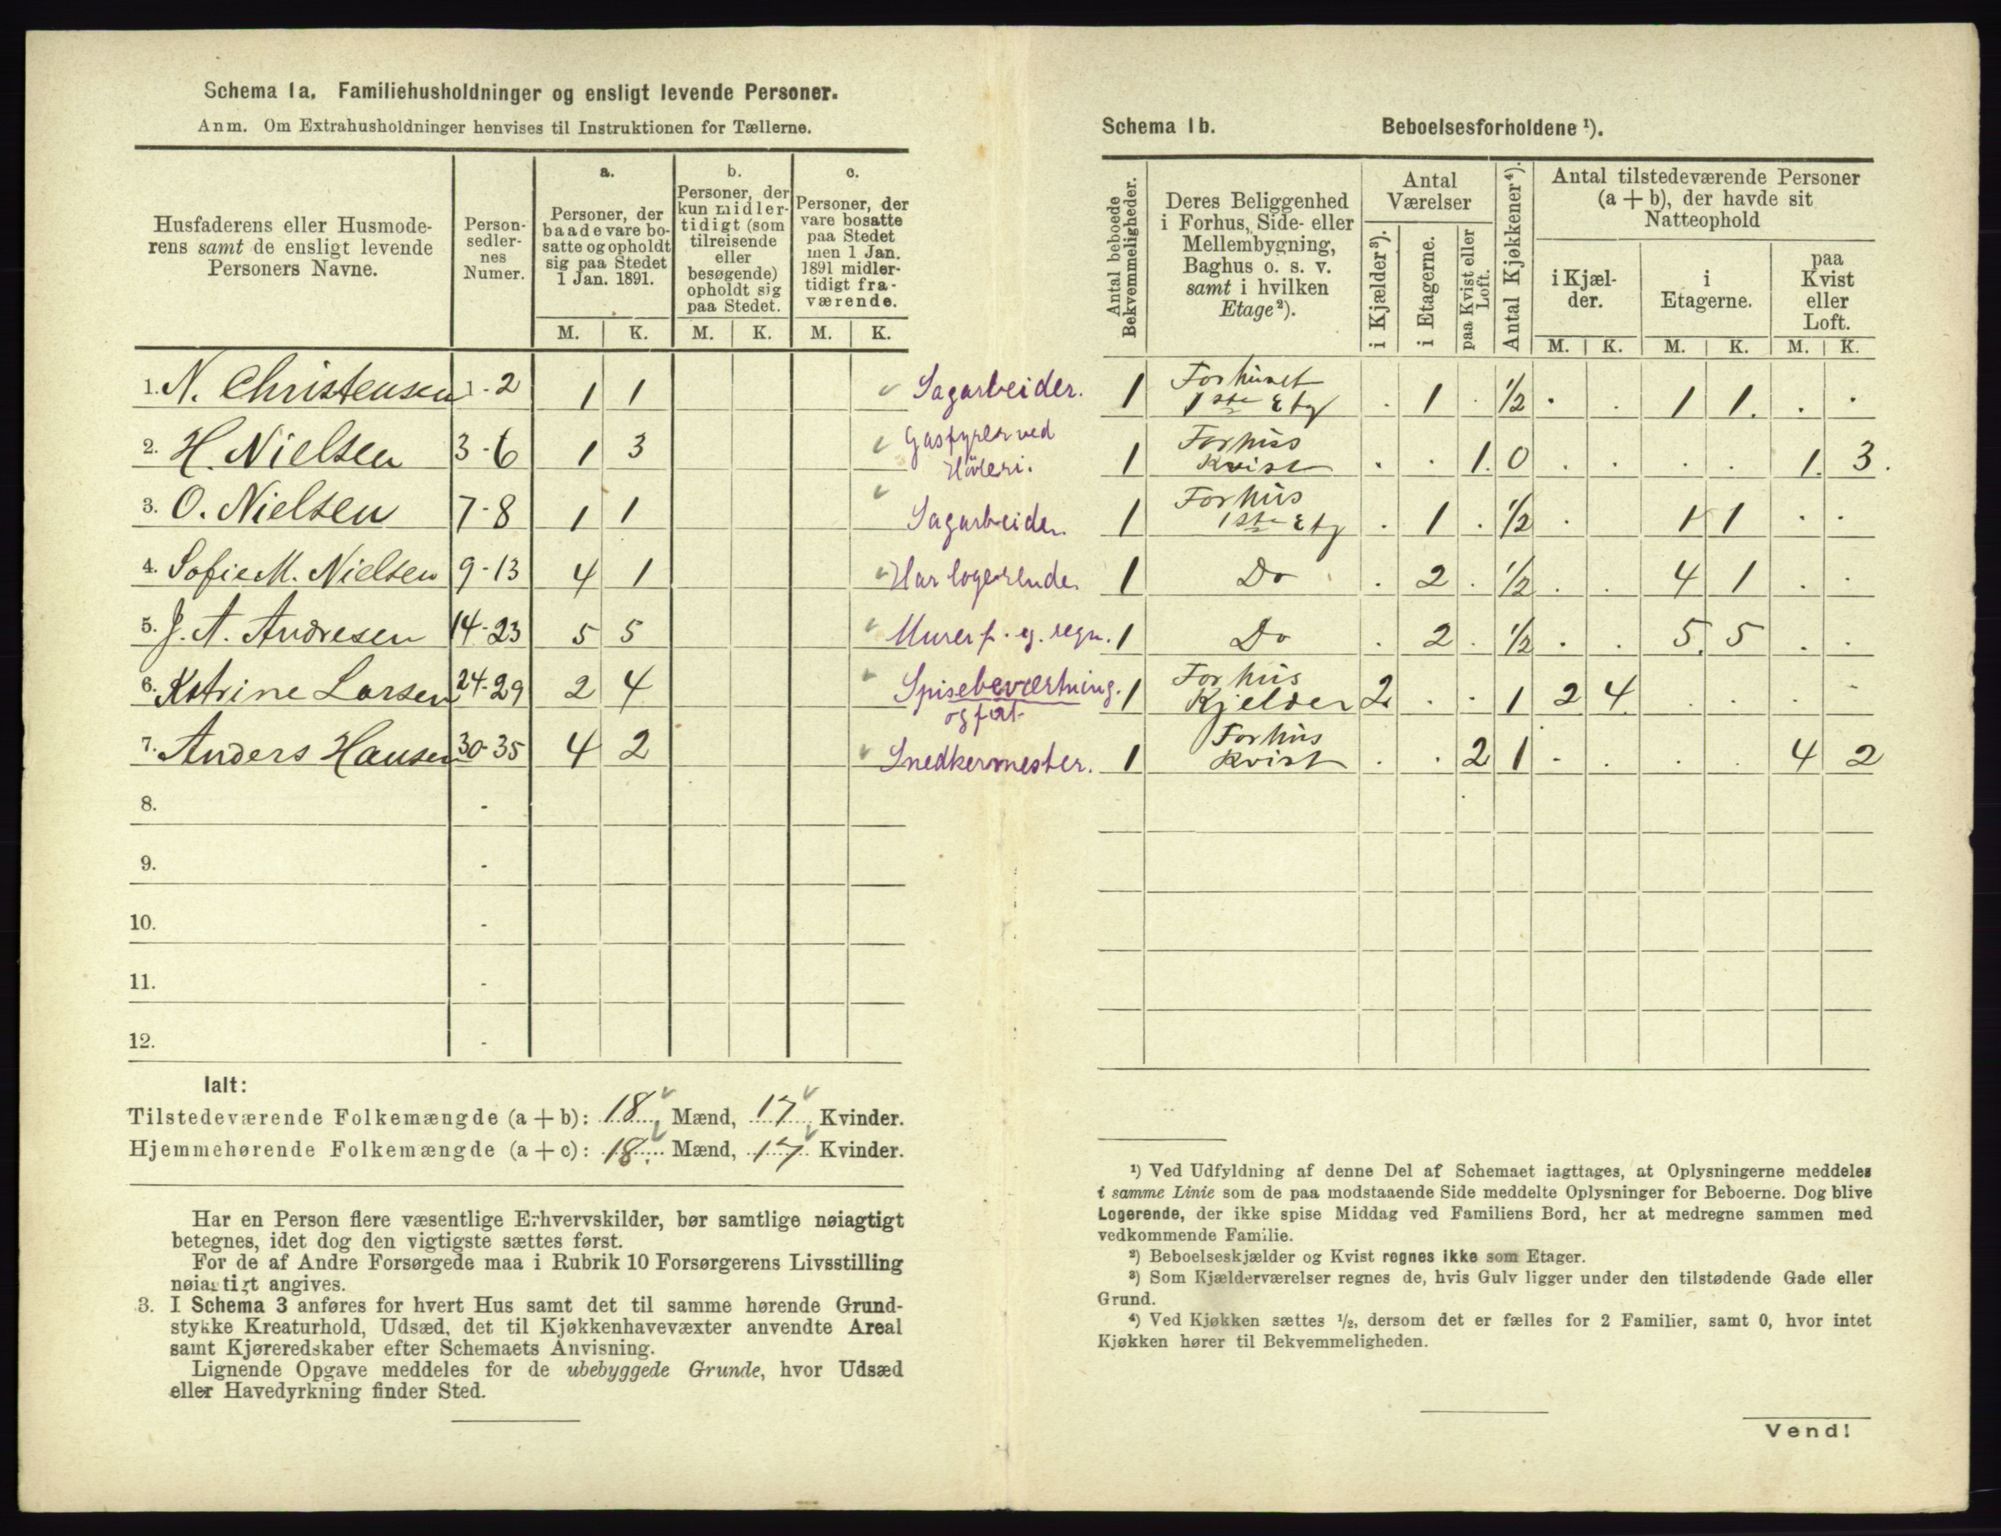 Schema 1a. Familiehusholdninger og ensligt levende Personer.
Anm. Om Extrahusholdninger henvises til Instruktionen for Tællerne.
Husfaderens eller Husmode-
rens samt de ensligt levende
Personers Navne.
Person-
sedler-
nes
Numer.
a.
Personer, der
baade vare bo-
satte og opholdt
sig paa Stedet
1 Jan. 1891.
b.
Personer, der
kun midler-
tidigt (som
tilreisende
eller
besøgende)
opholdt sig
paa Stedet.
c.
Personer, der
vare bosatte
paa Stedet
men 1 Jan.
1891 midler-
tidigt fra-
værende.
M. K. M. K. M. K.
1. N. Christensen 1-2 1 1 Sagarbeider.
2. H. Nielsen 3-6 1 3 Gasfyrer ved
Höleri.
3. O. Nielsen 7-8 1 1 Sagarbeider.
4. Sofie M. Nielsen 9-13 4 1 Har logerende.
5. J. A. Andresen 14-23 5 5 Murer f. eg. regn.
6. Katrine Larsen 24-29 2 4 Spisebeværtning.
og fort.
7. Anders Hansen 30-35 4 2 Snedkermester.
8. -
9. -
10. -
11. -
12. -
Ialt:
Tilstedeværende Folkemængde (a + b): 18 Mænd, 17 Kvinder.
Hjemmehørende Folkemængde (a + c): 18. Mænd, 17 Kvinder.
Har en Person flere væsentlige Erhvervskilder, bør samtlige nøiagtigt
betegnes, idet dog den vigtigste sættes først.
For de af Andre Forsørgede maa i Rubrik 10 Forsørgerens Livsstilling
nøiagtigt angives.
3. I Schema 3 anføres for hvert Hus samt det til samme hørende Grund-
stykke Kreaturhold, Udsæd, det til Kjøkkenhavevæxter anvendte Areal
samt Kjøreredskaber efter Schemaets Anvisning.
Lignende Opgave meddeles for de ubebyggede Grunde, hvor Udsæd
eller Havedyrkning finder Sted.
Schema 1b. Beboelsesforholdene ¹).
Antal beboede
Bekvemmeligheder.
Deres Beliggenhed
i Forhus, Side- eller
Mellembygning,
Baghus o. s. v.
samt i hvilken
Etage²).
Antal
Værelser
i Kjælder³).
i Etagerne.
paa Kvist eller
Loft.
Antal Kjøkkener⁴).
Antal tilstedeværende Personer
(a + b), der havde sit
Natteophold
i Kjæl-
der.
i
Etagerne.
paa
Kvist
eller
Loft.
M. K. M. K. M. K.
1 Forhuset
1ste Etg . 1 . ½ . . 1 1. . .
1 Forhus
Kvist . . 1. 0 . . . . 1. 3.
1 Forhus
1ste Etg . 1 . ½ . 1 1 . .
1 Do . 2 . ½ . . 4 1 . .
1 Do . 2 . ½ . . 5. 5 . .
1 Forhus
Kjelder 2. . . 1 2 4. . . . .
1 Forhus
Kvist . . 2 1 . . . . 4 2
¹) Ved Udfyldning af denne Del af Schemaet iagttages, at Oplysningerne meddeles
i samme Linie som de paa modstaaende Side meddelte Oplysninger for Beboerne. Dog blive
Logerende, der ikke spise Middag ved Familiens Bord, her at medregne sammen med
vedkommende Familie.
²) Beboelseskjælder og Kvist regnes ikke som Etager.
³) Som Kjælderværelser regnes de, hvis Gulv ligger under den tilstødende Gade eller
Grund.
⁴) Ved Kjøkken sættes ½, dersom det er fælles for 2 Familier, samt 0, hvor intet
Kjøkken hører til Bekvemmeligheden.
Vend!